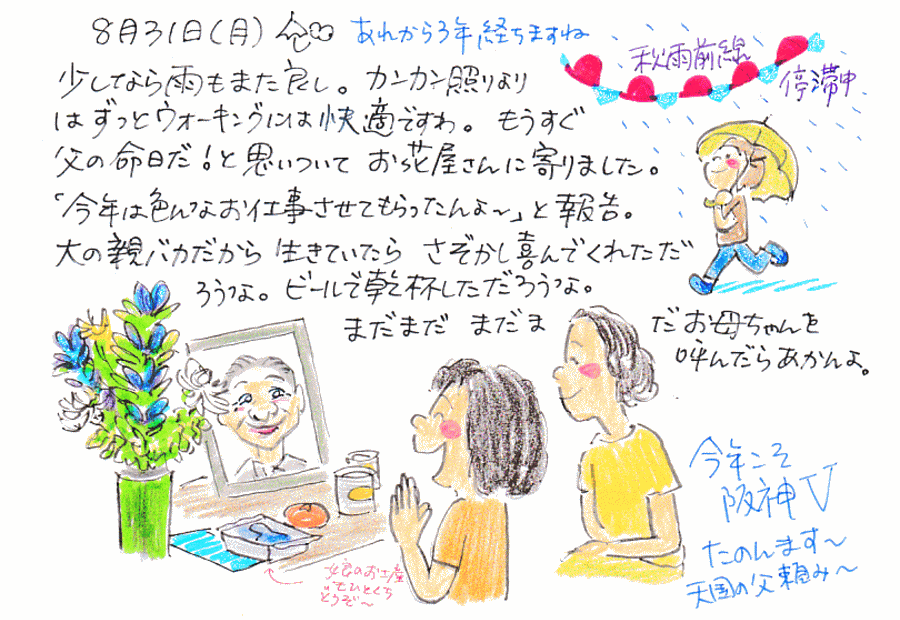 8月31日(月)
あれから3年経ちますね
秋雨前線
停滞中
少しなら雨もまた良し。カンカン照りより
はずっとウォーキングには快適ですわ。もうすぐ
父の命日だ!と思いついてお花屋さんに寄りました。
「今年は色んなお仕事させてもらったんよ〜」と報告。
大の親バカだから生きていたらさぞかし喜んでくれただ
ろうな。ビールで乾杯しただろうな。
まだまだ まだま だお母ちゃんを
呼んだらあかんよ。
今年こそ
阪神V
たのんます〜
天国の父頼み〜
娘のお土産
もひとくち
どうぞ〜